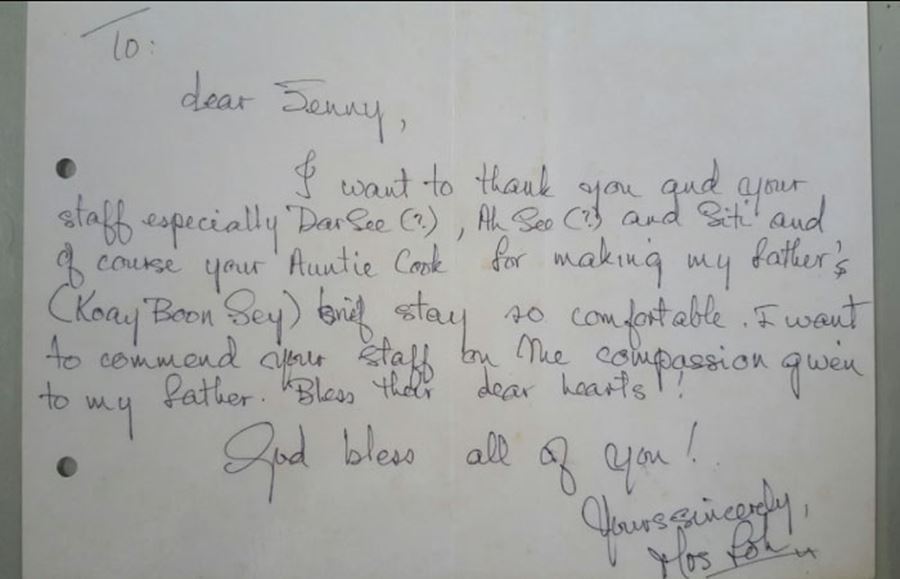 To:
dear Jenny,
I want to thank you and your
staff especially DarSee (?), Ah See (?) and Siti and
of course your Auntie Cook for making my father's
(Koay Boon Sey) brief stay so comfortable. I want
to commend your staff on the compassion given
to my father. Bless their dear hearts!
God bless all of you!
Yours sincerely,
Loh